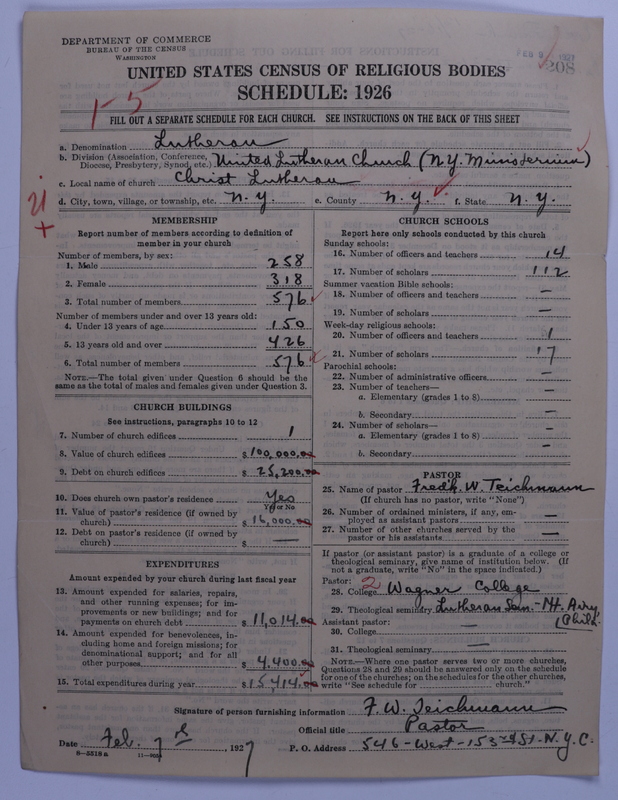 DEPARTMENT OF COMMERCE
BUREAU OF THE CENSUS
WASHINGTON
FEB 9 1927
208
UNITED STATES CENSUS OF RELIGIOUS BODIES
SCHEDULE: 1926
1-5
FILL OUT A SEPARATE SCHEDULE FOR EACH CHURCH. SEE INSTRUCTIONS ON THE BACK OF THIS SHEET
a. Denomination Lutheran
b. Division (Association, Conference, Diocese, Presbytery, Synod, etc.) United Lutheran Church (N.Y. Ministerium)
c. Local name of church Christ Lutheran
d. City, town, village, or township, etc. N. Y. e. County N. Y. f. State N. Y.
MEMBERSHIP
Report number of members according to definition of
member in your church
Number of members, by sex:
1. Male 258
2. Female 318
3. Total number of members 576
Number of members under and over 13 years old:
4. Under 13 years of age 150
5. 13 years old and over 426
6. Total number of members 576
NOTE.—The total given under Question 6 should be the
same as the total of males and females given under Question 3.
CHURCH BUILDINGS
See instructions, paragraphs 10 to 12
7. Number of church edifices 1
8. Value of church edifices $100,000.00
9. Debt on church edifices $25,200.00
10. Does church own pastor's residence Yes
Yes or No
11. Value of pastor's residence (if owned by
church) $16,000.00
12. Debt on pastor's residence (if owned by
church) $ —
EXPENDITURES
Amount expended by your church during last fiscal year
13. Amount expended for salaries, repairs,
and other running expenses; for im-
provements or new buildings; and for
payments on church debt $11,014.00
14. Amount expended for benevolences, in-
cluding home and foreign missions; for
denominational support; and for all
other purposes $4,400.00
15. Total expenditures during year $15,414.00
CHURCH SCHOOLS
Report here only schools conducted by this church
Sunday schools:
16. Number of officers and teachers 14
17. Number of scholars 112
Summer vacation Bible schools:
18. Number of officers and teachers —
19. Number of scholars —
Week-day religious schools:
20. Number of officers and teachers 1
21. Number of scholars 17
Parochial schools:
22. Number of administrative officers —
23. Number of teachers—
a. Elementary (grades 1 to 8) —
b. Secondary —
24. Number of scholars—
a. Elementary (grades 1 to 8) —
b. Secondary —
PASTOR
25. Name of pastor Fredk. W. Teichmann
(If church has no pastor, write "None")
26. Number of ordained ministers, if any, em-
ployed as assistant pastors —
27. Number of other churches served by the
pastor or his assistants —
If pastor (or assistant pastor) is a graduate of a college or
theological seminary, give name of institution below. (If
not a graduate, write "No" in the space indicated.)
Pastor:
28. College 2 Wagner College
29. Theological seminary Lutheran Sem. - Mt. Airy
(Phila.
Assistant pastor:
30. College —
31. Theological seminary —
NOTE.—Where one pastor serves two or more churches,
Questions 28 and 29 should be answered only on the schedule
for one of the churches; on the schedules for the other churches,
write "See schedule for church."
Signature of person furnishing information F. W. Teichmann
Official title Pastor
Date Feb. 7th 1927 P. O. Address 546-West-153rd St. N.Y.C.
8-5518 a